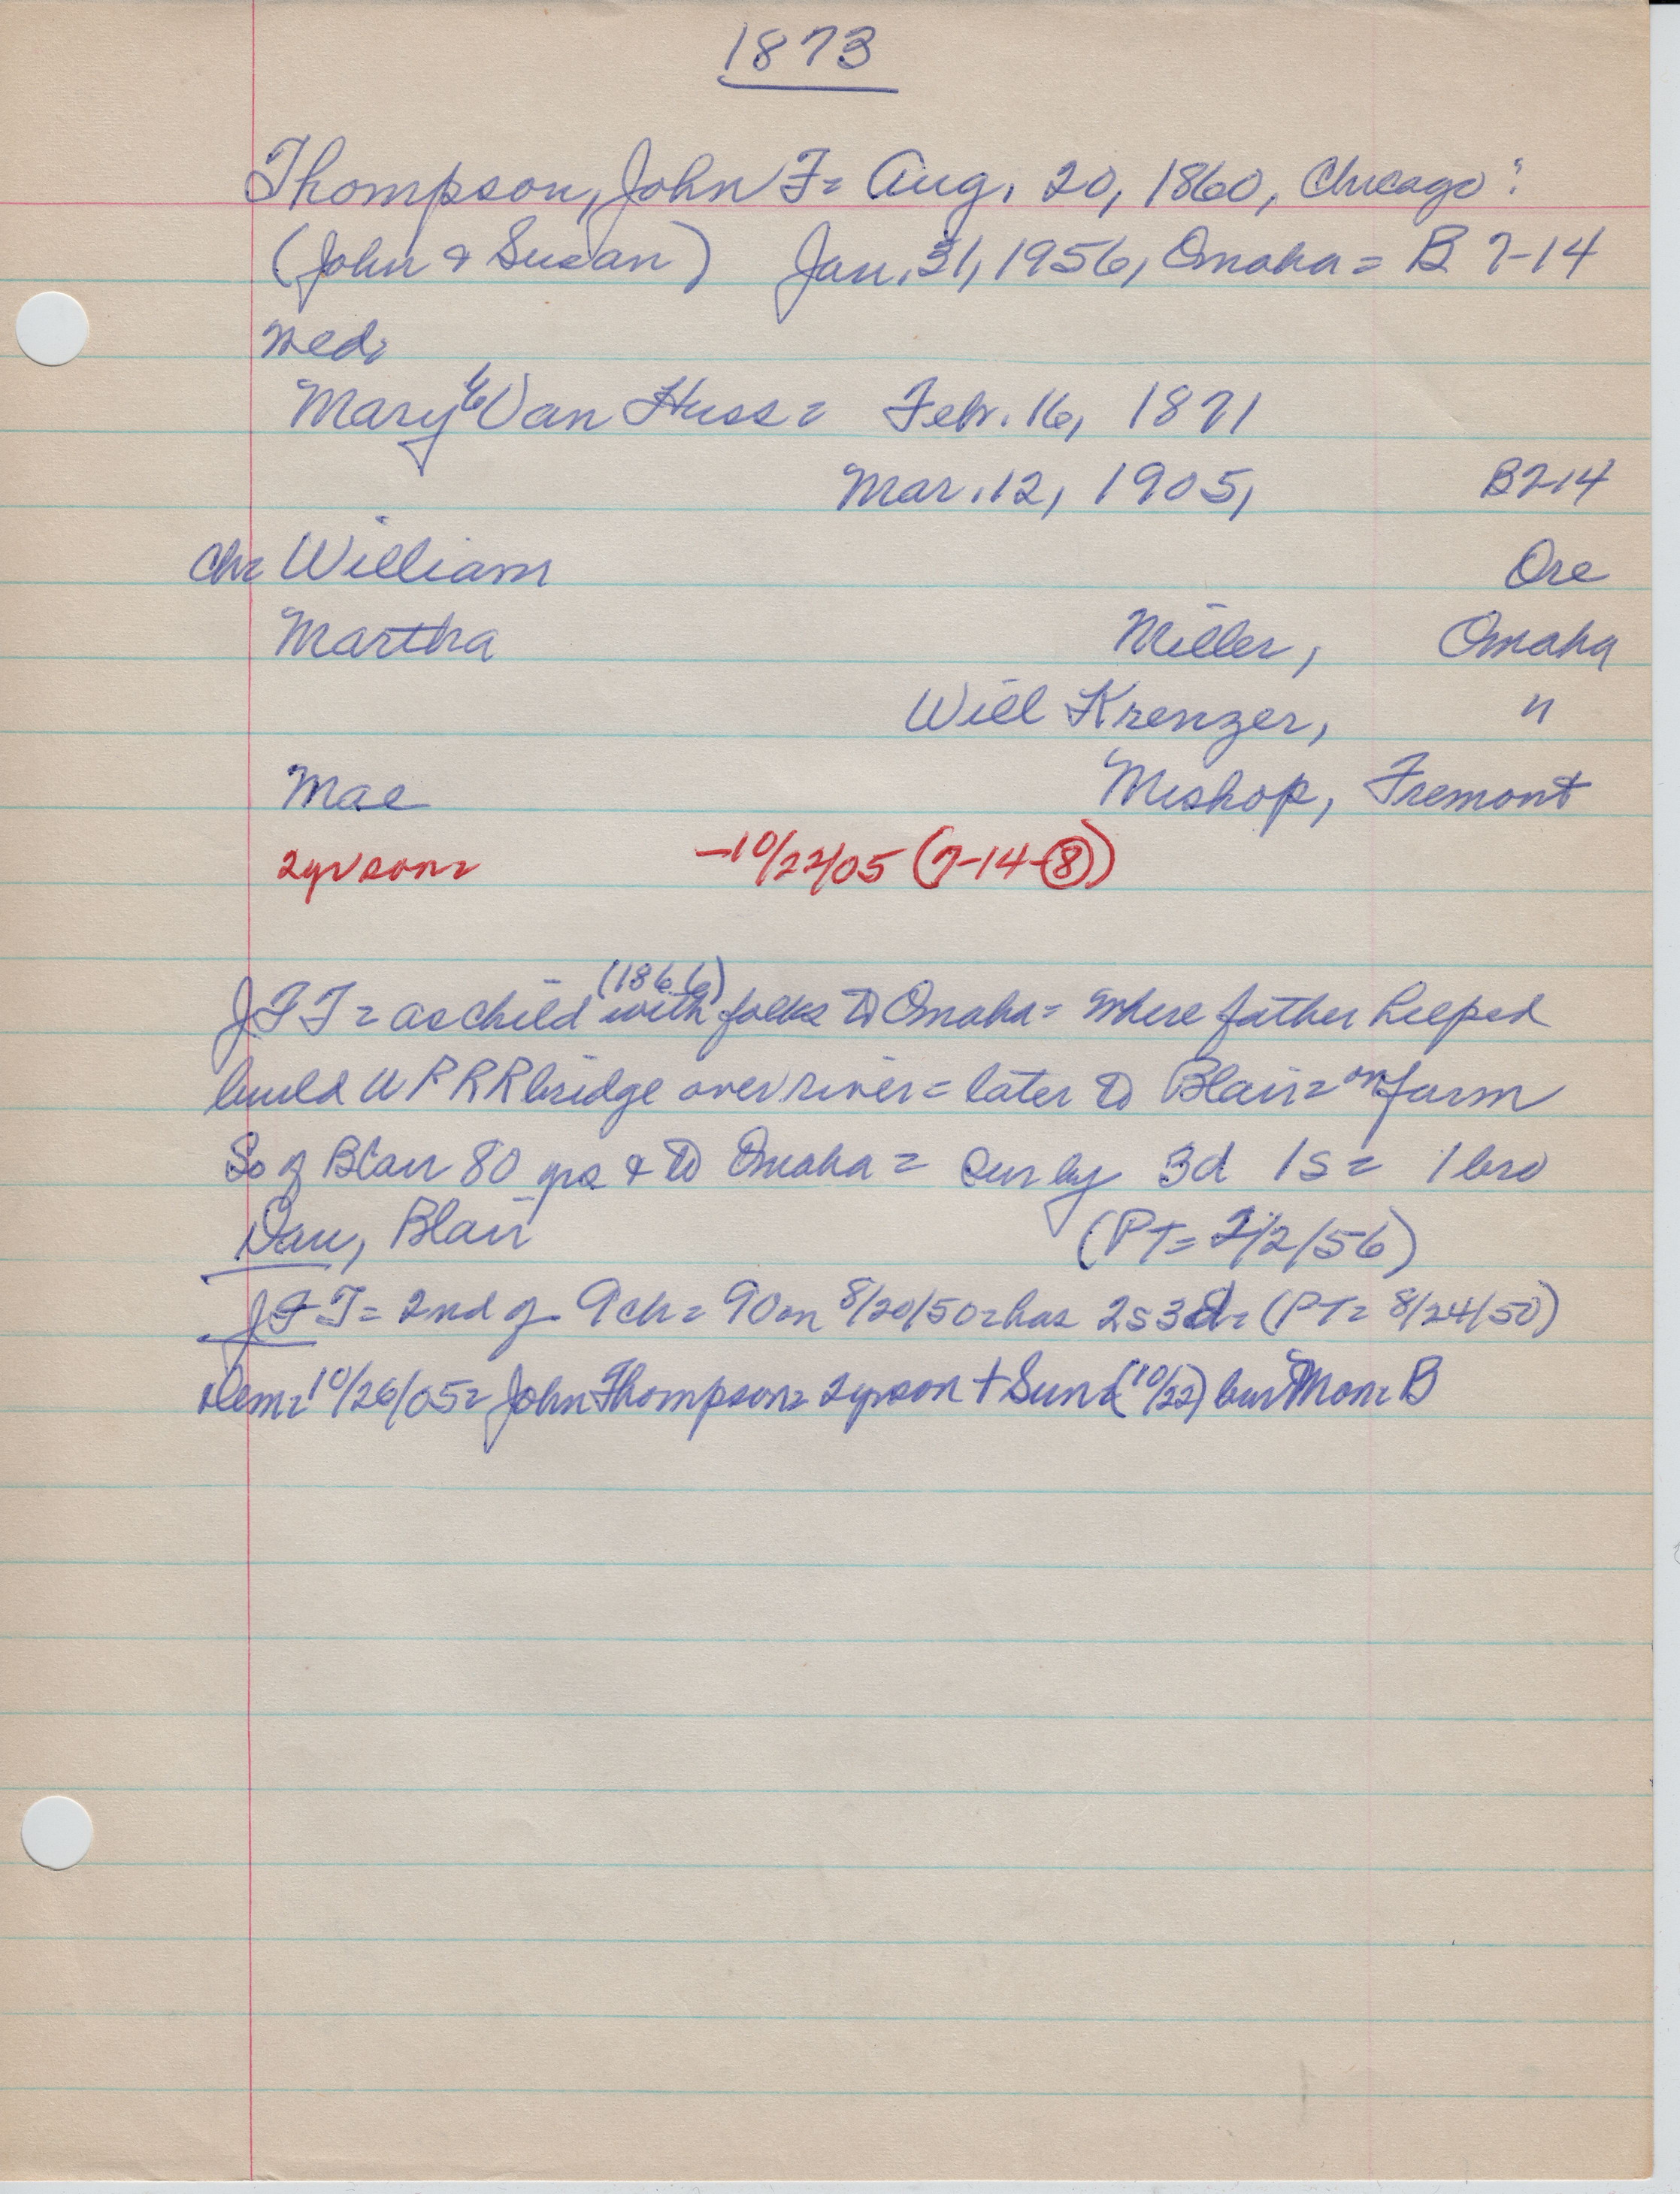 1873
Thompson, John F= Aug. 20, 1860, Chicago:
(John & Susan) Jan. 31, 1956, Omaha = B 7-14
wed,
Mary E Van Huss = Febr. 16, 1871
Mar. 12, 1905, B 7-14
Ch= William Ore
Martha Miller, Omaha
Will Krenzer, "
Mae Mishop, Fremont
2 yr son= -10/22/05 (7-14-8)
(1866)
JFT = as child with folks to Omaha = where father helped
build U P R R bridge over river = later to Blair = on farm
So of Blair 80 yrs & to Omaha = sur by 3d 1s = 1 bro
Dan, Blair (PT= 2/2/56)
JFT= 2nd of 9 ch= 90 on 8/20/50= has 2s 3d= (PT= 8/24/50)
Dem= 10/26/05= John Thompson= 2 yr son + Sund (10/22) bur Mon= B